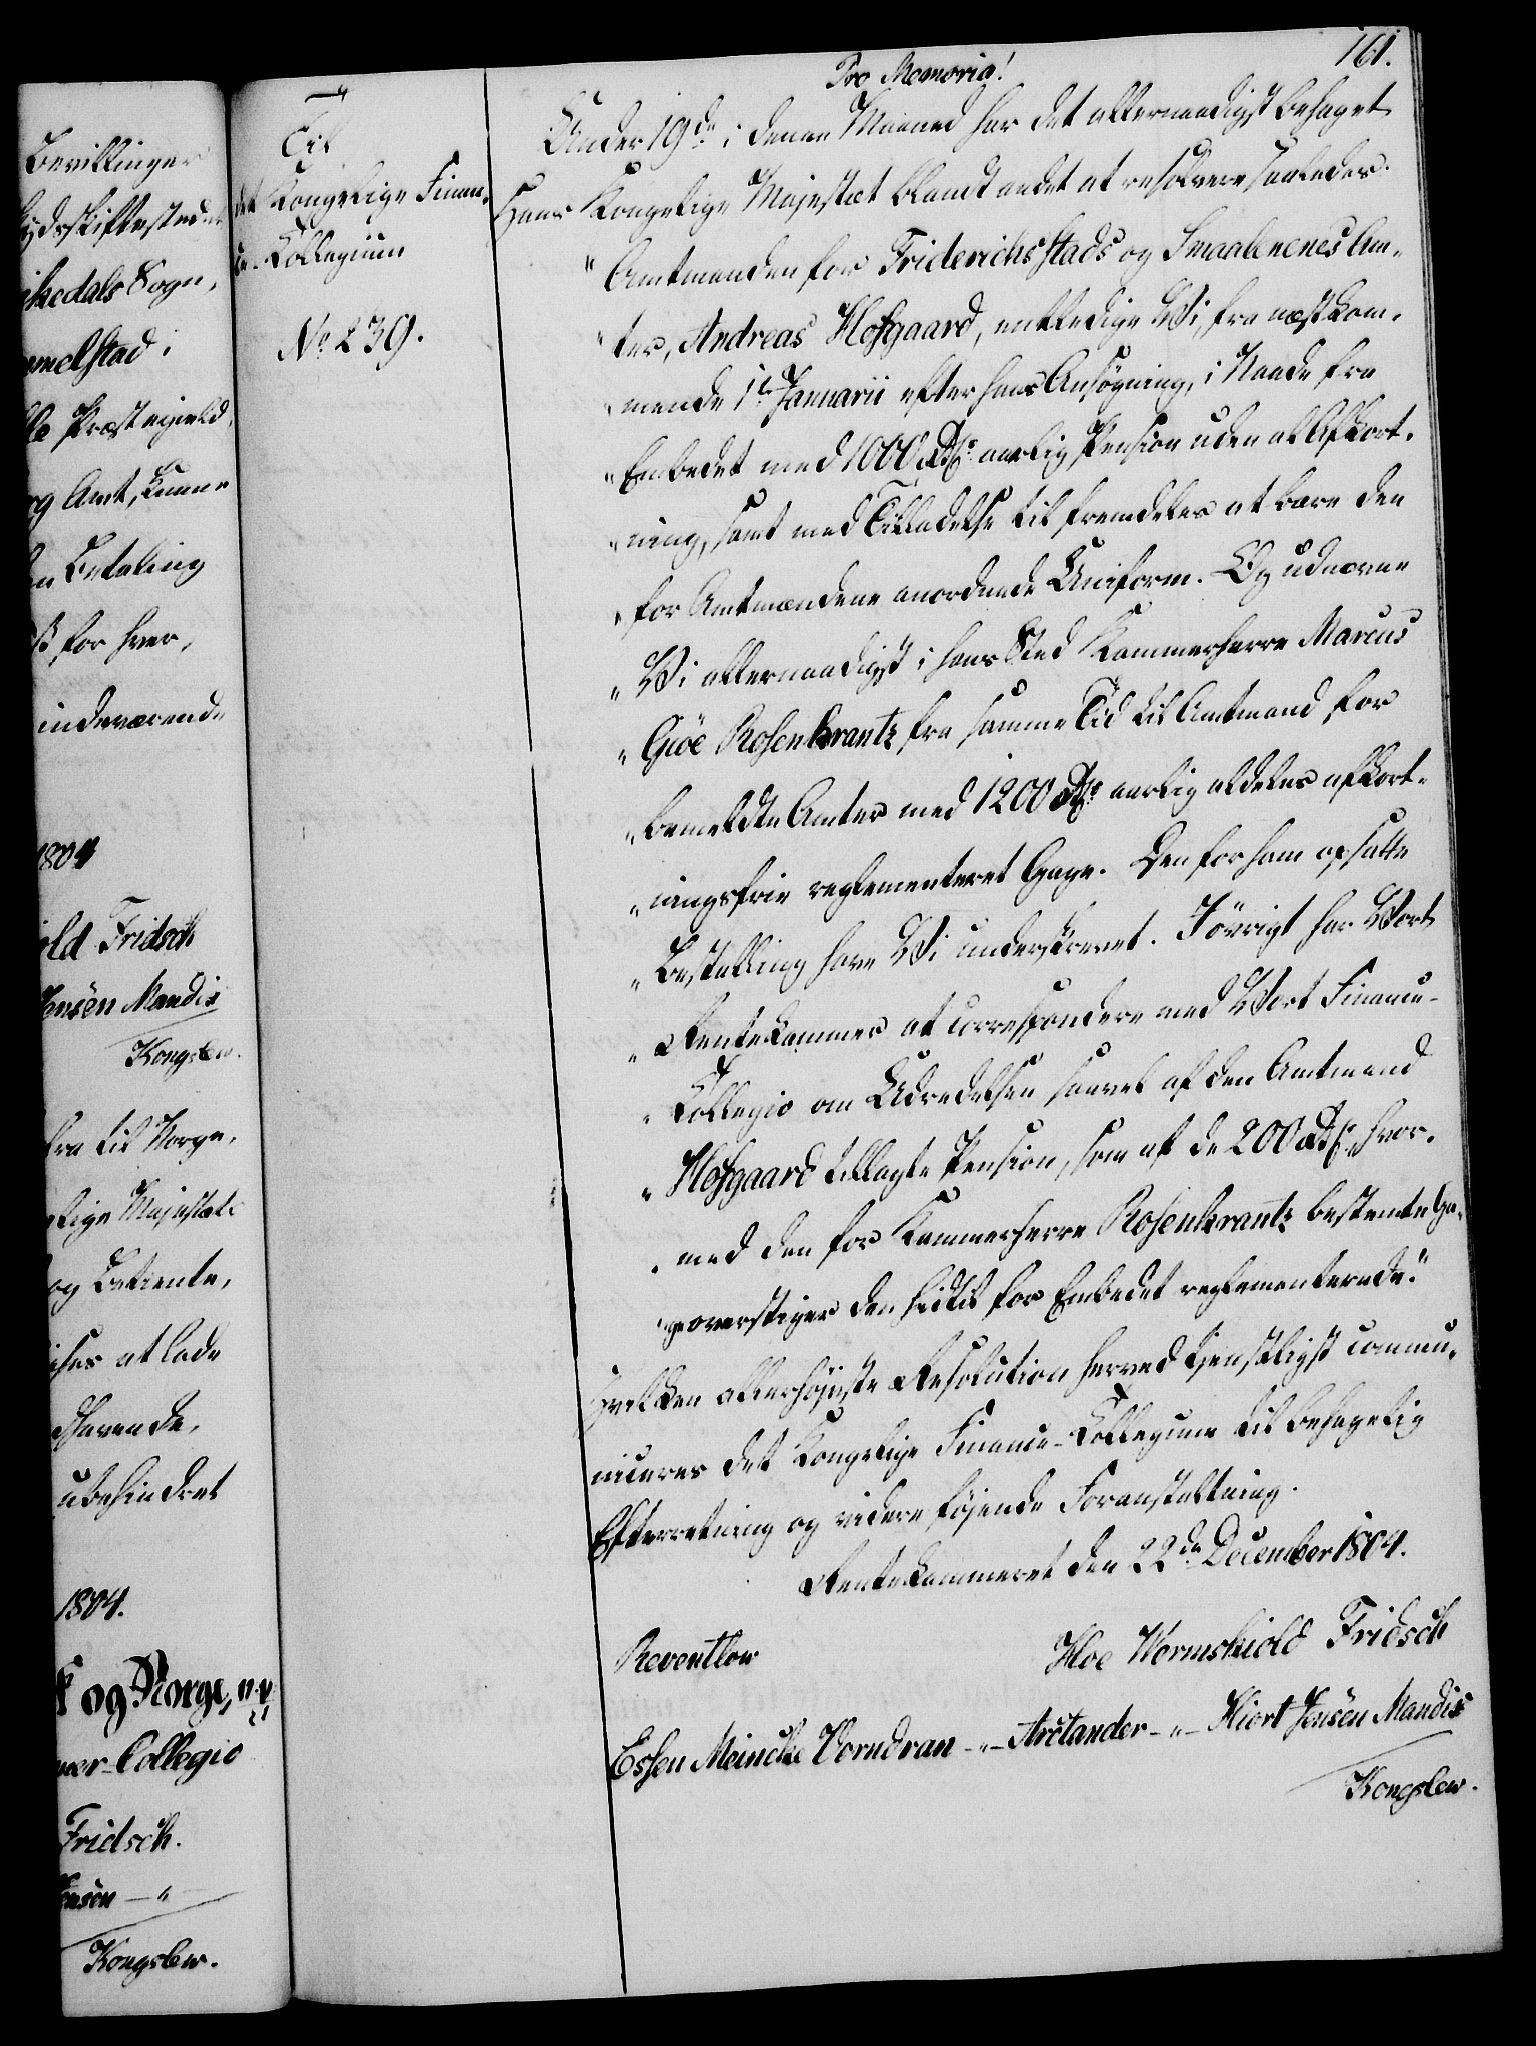 Bevillinger
ikedals Sogn,
melstad i
Præstegield,
rg Amt, kunne
Betaling
ß for hver,
indeværende
1804
ld Fridsch
Jensen Mandix
Kongslew.
fra til Norge,
Majestæt
og Betiente,
at lade
ubehindret
1804.
og Norge, n.v.
mer-Collegio
Fridsch.
Jensen —"—
Kongslew.
Til
det Kongelige Finan-
ce-Collegium
No 239.
161.
Pro Memoria!
Under 19de i denne Maaned har det allernaadigst behaget
Hans Kongelige Majestæt blandt andet at resolvere saaledes:
"Amtmanden for Friderichsstads og Smaalenenes Am-
"ter, Andreas Hofgaard, entledige Vi, fra næstkom-
"mende 1te Januarii efter hans Ansøgning, i Naade fra
"Embedet med 1000 Rdr. aarlig Pension uden al Afkort-
"ning, samt med Tilladelse til fremdeles at bære den
"for Amtmændene anordnede Uniform. Og udnævne
"Vi allernaadigst i hans Sted Kammerherre Marcus
"Giöe Rosenkrantz fra samme Tid til Amtmand for
"bemeldte Amter med 1200 Rdr. aarlig aldeles afkort-
"ningsfrie reglementeret Gage. Den for ham opsatte
"Bestalling have Vi underskrevet. Iøvrigt har Vort
"Rentekammer at correspondere med Vort Finance-
"Collegio om Udredelsen saavel af den Amtmand
"Hofgaard tillagte Pension, som af de 200 Rdr., hvor-
"med den for Kammerherre Rosenkrantz bestemte Ga-
"ge overstiger den hidtil for Embedet reglementerede."
Hvilken allerhøjeste Resolution herved tjenstligst commu-
niceres det Kongelige Finance-Collegium til behagelig
Efterretning og videre føjende Foranstaltning.
Rentekammeret den 22de December 1804.
Reventlow Hoe Wormskiold Fridsch
Essen Meincke Vorndran —"— Arctander —"— Hiort Jensen Mandix
Kongslew.